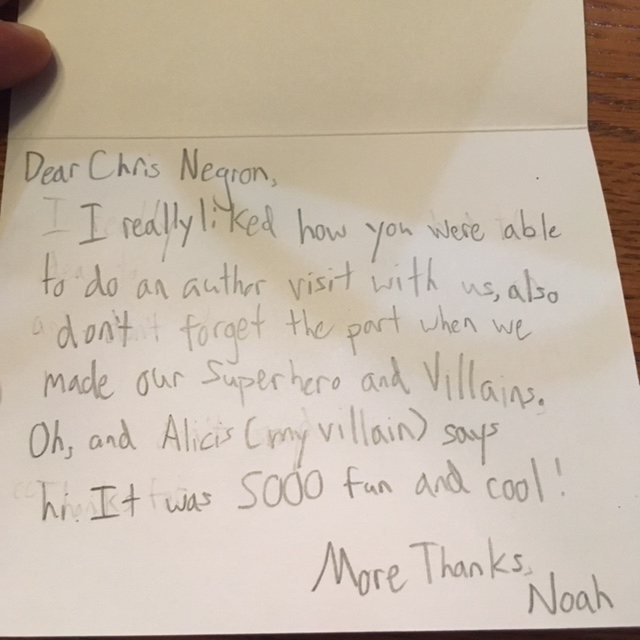 Dear Chris Negron,
I really liked how you were able
to do an author visit with us, also
don't forget the part when we
made our Superhero and Villains.
Oh, and Alicis (my villain) says
hi. It was SOOO fun and cool!
More Thanks,
Noah